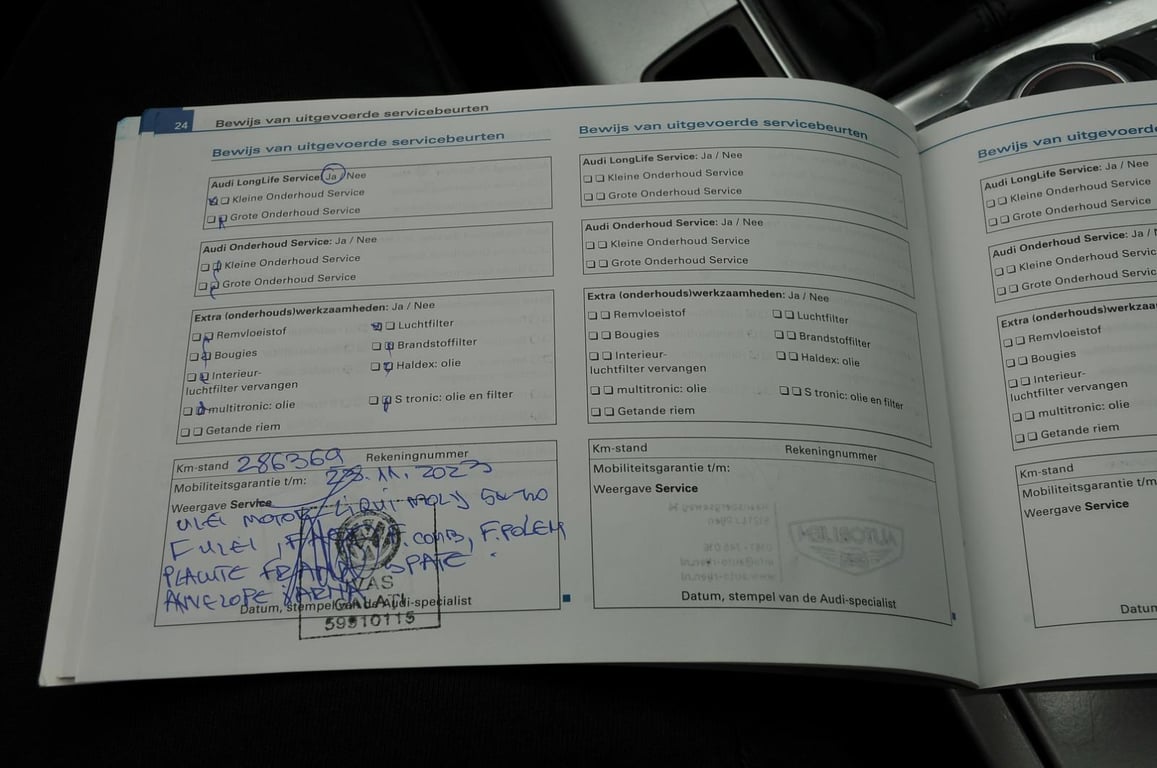 24
Bewijs van uitgevoerde servicebeurten
Bewijs van uitgevoerde servicebeurten
Audi LongLife Service: Ja / Nee
Kleine Onderhoud Service
Grote Onderhoud Service
Audi Onderhoud Service: Ja / Nee
Kleine Onderhoud Service
Grote Onderhoud Service
Extra (onderhouds)werkzaamheden: Ja / Nee
Remvloeistof
Luchtfilter
Bougies
Brandstoffilter
Interieur-
luchtfilter vervangen
Haldex: olie
multitronic: olie
S tronic: olie en filter
Getande riem
Km-stand 286369 Rekeningnummer
Mobiliteitsgarantie t/m: 11. 2023
Weergave Service
ULEI MOTOR LIQUI MOLY
F ULEI, COMB, F. POLEN
PLACUTE SPATE
ANVELOPE IARNA
Datum, stempel van de Audi-specialist
GALATI
59910115
Bewijs van uitgevoerde servicebeurten
Audi LongLife Service: Ja / Nee
Kleine Onderhoud Service
Grote Onderhoud Service
Audi Onderhoud Service: Ja / Nee
Kleine Onderhoud Service
Grote Onderhoud Service
Extra (onderhouds)werkzaamheden: Ja / Nee
Remvloeistof
Luchtfilter
Bougies
Brandstoffilter
Interieur-
luchtfilter vervangen
Haldex: olie
multitronic: olie
S tronic: olie en filter
Getande riem
Km-stand Rekeningnummer
Mobiliteitsgarantie t/m:
Weergave Service
Datum, stempel van de Audi-specialist
Bewijs van uitgevoerde
Audi LongLife Service: Ja / Nee
Kleine Onderhoud Service
Grote Onderhoud Service
Audi Onderhoud Service: Ja /
Kleine Onderhoud Servic
Grote Onderhoud Servic
Extra (onderhouds)werkza
Remvloeistof
Bougies
Interieur-
luchtfilter vervangen
multitronic: olie
Getande riem
Km-stand
Mobiliteitsgarantie t/m:
Weergave Service
Datum